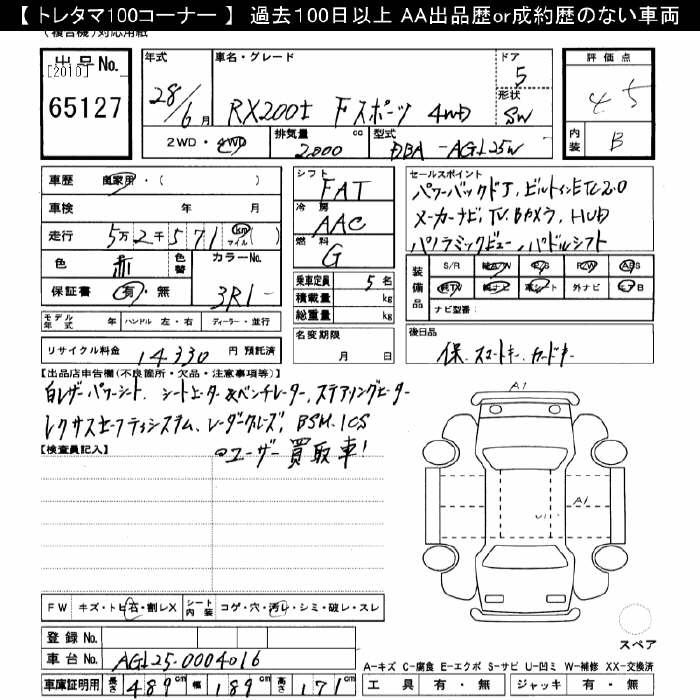 【 トレタマ100コーナー 】 過去100日以上 AA出品歴or成約歴のない車両
(複合機)対応用紙
出品No.
[2010]
65127
年式
28/6月
車名・グレード
RX200t Fスポーツ 4WD
ドア
5
形状
SW
2WD・4WD
排気量 cc
2,000
型式
DBA-AGL25W
評価点
4.5
内装
B
車歴 自家用・( )
車検 年 月
走行 5万2千571 km マイル ( )
色 赤 色替 カラーNo. 3R1-
保証書 有・無
モデル年式 年 ハンドル 左・右 ディーラー・並行
リサイクル料金 14,330 円 預託済
シフト
FAT
冷房
AAC
燃料
G
乗車定員 5 名
積載量 kg
総重量 kg
名変期限
月 日
セールスポイント
パワーバックドア、ビルトインETC2.0
メーカーナビ、TV、Bカメラ、HUD
パノラミックビュー、パドルシフト
装備品
S/R 純A/W P/S P/W ABS
純TV 純ナビ 革シート 外ナビ エアB
ナビ型番:
後日品
保、スマートキー、カードキー
【出品店申告欄(不良箇所・欠品・注意事項等)】
白レザーパワーシート、シートヒーター&ベンチレーター、ステアリングヒーター
レクサスセーフティシステム、レーダークルーズ、BSM、ICS
⊙ユーザー買取車!
【検査員記入】
A1
A1
U1
FW キズ・トビ石・割レX シート内装 コゲ・穴・汚レ・シミ・破レ・スレ
登録 No.
車台 No. AGL25-0004016
車庫証明用 長さ 489 cm 幅 189 cm 高さ 171 cm
スペア
A-キズ C-腐食 E-エクボ S-サビ U-凹ミ W-補修 XX-交換済
工具 有・無 ジャッキ 有・無